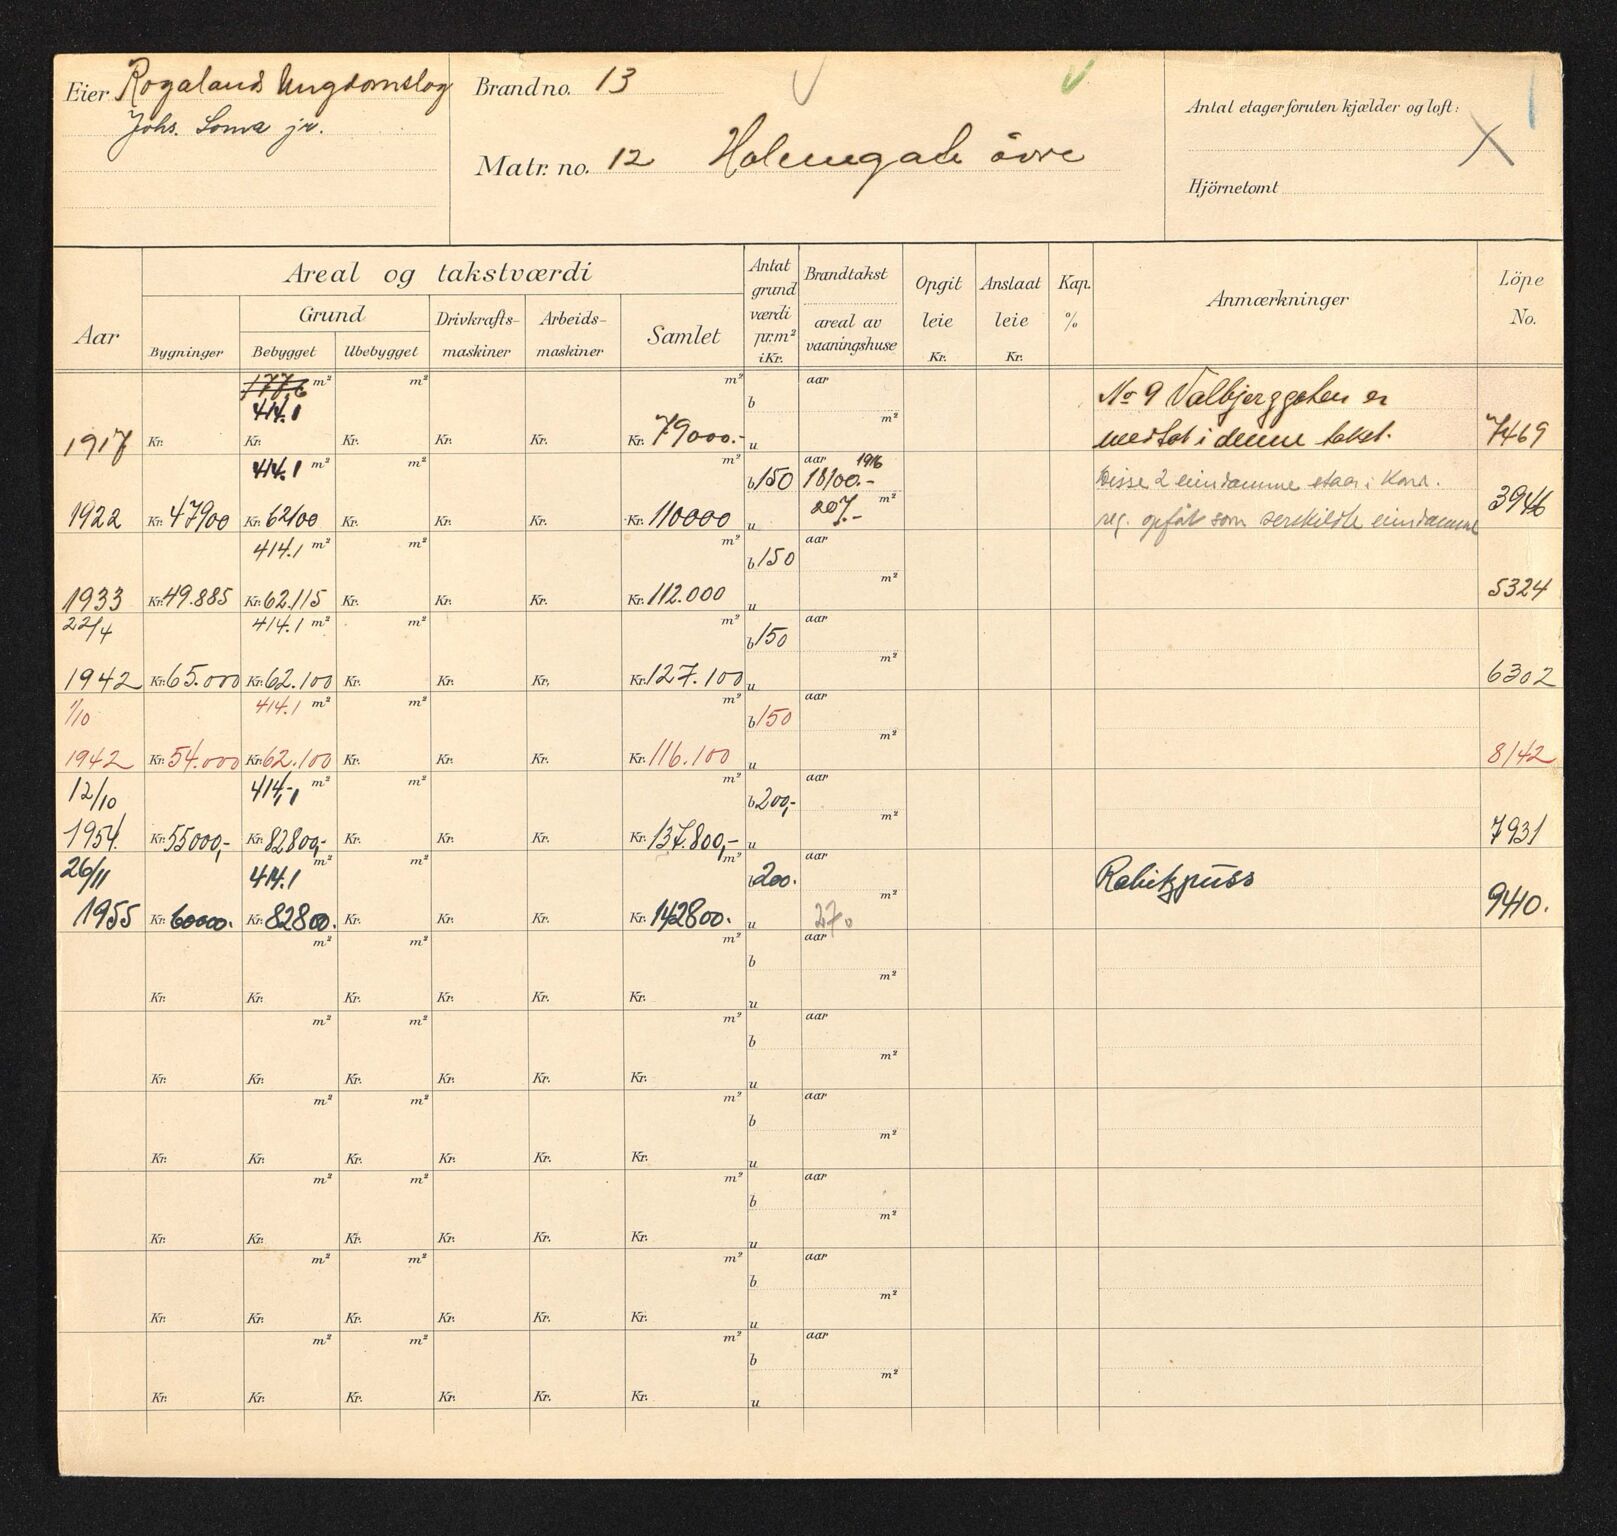 Eier Rogaland Ungdomslag
Johs. Soma jr.
Brand no. 13
Matr. no. 12 Holmegate övre
Antal etager foruten kjælder og loft:
Hjörnetomt
Aar
Areal og takstværdi
Bygninger
Grund
Bebygget
Ubebygget
Drivkrafts-
maskiner
Arbeids-
maskiner
Samlet
Antal
grund
værdi
pr. m²
i Kr.
Brandtakst
areal av
vaaningshuse
Opgit
leie
Kr.
Anslaat
leie
Kr.
Kap.
%
Anmærkninger
Löpe
No.
177,6 m² m² m² aar
414.1 b m²
1917 Kr. Kr. Kr. Kr. Kr. Kr. 79000.- u
No 9 Valbjerggaten er
medtat i denne takst.
7469
414.1 m² m² m² b 150 aar 1916
18100.-
207.- m²
1922 Kr. 47900 Kr. 62100 Kr. Kr. Kr. Kr. 110000 u
Disse 2 eiendamme staar i
reg. opført som serskildte eiendamme
3946
414.1 m² m² m² b 150 aar
m²
1933 Kr. 49.885 Kr. 62.115 Kr. Kr. Kr. Kr. 112.000 u 5324
22/4 414.1 m² m² m² b 150 aar
m²
1942 Kr. 65.000 Kr. 62.100 Kr. Kr. Kr. Kr. 127.100 u 6302
1/10 414.1 m² m² m² b 150 aar
m²
1942 Kr. 54.000 Kr. 62.100 Kr. Kr. Kr. Kr. 116.100 u 8142
12/10 414,1 m² m² m² b 200,- aar
m²
1954. Kr. 55000,- Kr. 82800,- Kr. Kr. Kr. Kr. 137.800,- u 7931
26/11 414.1 m² m² m² b 200. aar
m² Rabitzpuss
1955 Kr. 60000. Kr. 82800. Kr. Kr. Kr. Kr. 142800. u 270 9410.
m² m² m² aar
b m²
Kr. Kr. Kr. Kr. Kr. Kr. u
m² m² m² aar
b m²
Kr. Kr. Kr. Kr. Kr. Kr. u
m² m² m² aar
b m²
Kr. Kr. Kr. Kr. Kr. Kr. u
m² m² m² aar
b m²
Kr. Kr. Kr. Kr. Kr. Kr. u
m² m² m² aar
b m²
Kr. Kr. Kr. Kr. Kr. Kr. u
m² m² m² aar
b m²
Kr. Kr. Kr. Kr. Kr. Kr. u